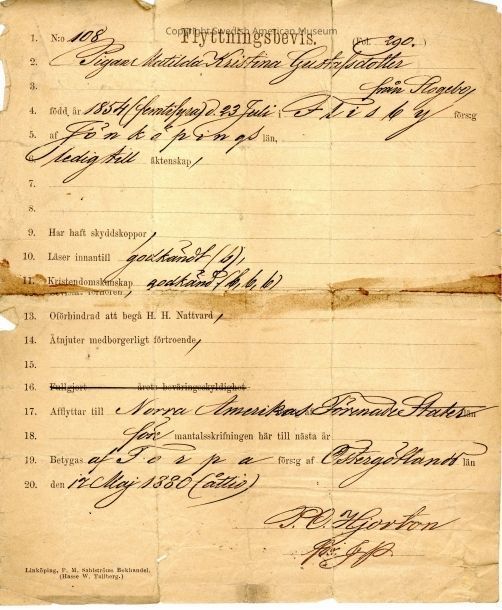 Copyright Swedish American Museum
1. N:o 108 Flyttningsbevis. (Fol. 290.
2. Pigan Matilda Kristina Gustafsdotter
3. från
4. född år 1854 (femtifyra) d. 23 Juli i Flisby förs:g
5. af Jönköpings län,
6. ledig till äktenskap,
7.
8.
9. Har haft skyddskoppor,
10. Läser innantill godkändt (b),
11. Kristendomskunskap godkänd (b, b, b)
13. Oförhindrad att begå H. H. Nattvard,
14. Åtnjuter medborgerligt förtroende,
15.
16. Fullgjort årets beväringsskyldighet
17. Afflyttar till Norra Amerikas Förenade Stater län
18. för mantalsskrifningen här till nästa år
19. Betygas af Torpa förs:g af Östergötlands län
20. den 12 Maj 1880 (åttio)
Linköping, P. M. Sahlströms Bokhandel,
(Hasse W. Tullberg.)